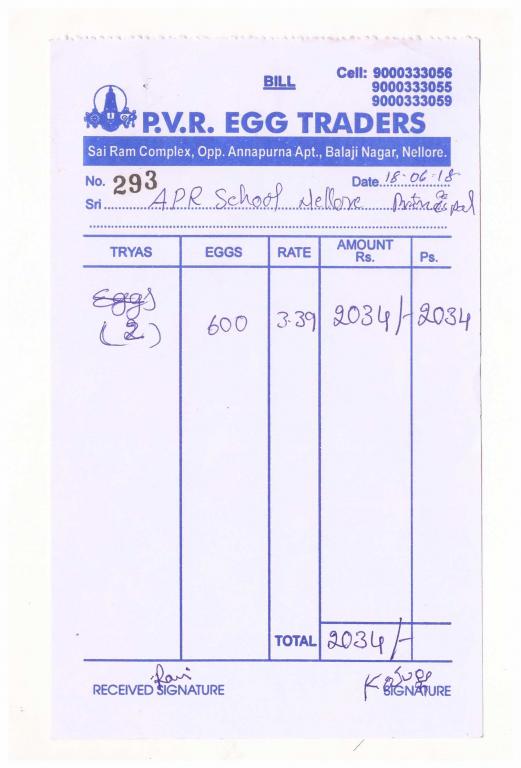 BILL
Cell: 9000333056
9000333055
9000333059
P.V.R. EGG TRADERS
Sai Ram Complex, Opp. Annapurna Apt., Balaji Nagar, Nellore.
No. 293 Date 18-06-18
Sri APR School Nellore
TRYAS EGGS RATE AMOUNT Rs. Ps.
Eggs
(2) 600 3.39 2034/- 2034
TOTAL 2034/-
Ravi
RECEIVED SIGNATURE SIGNATURE